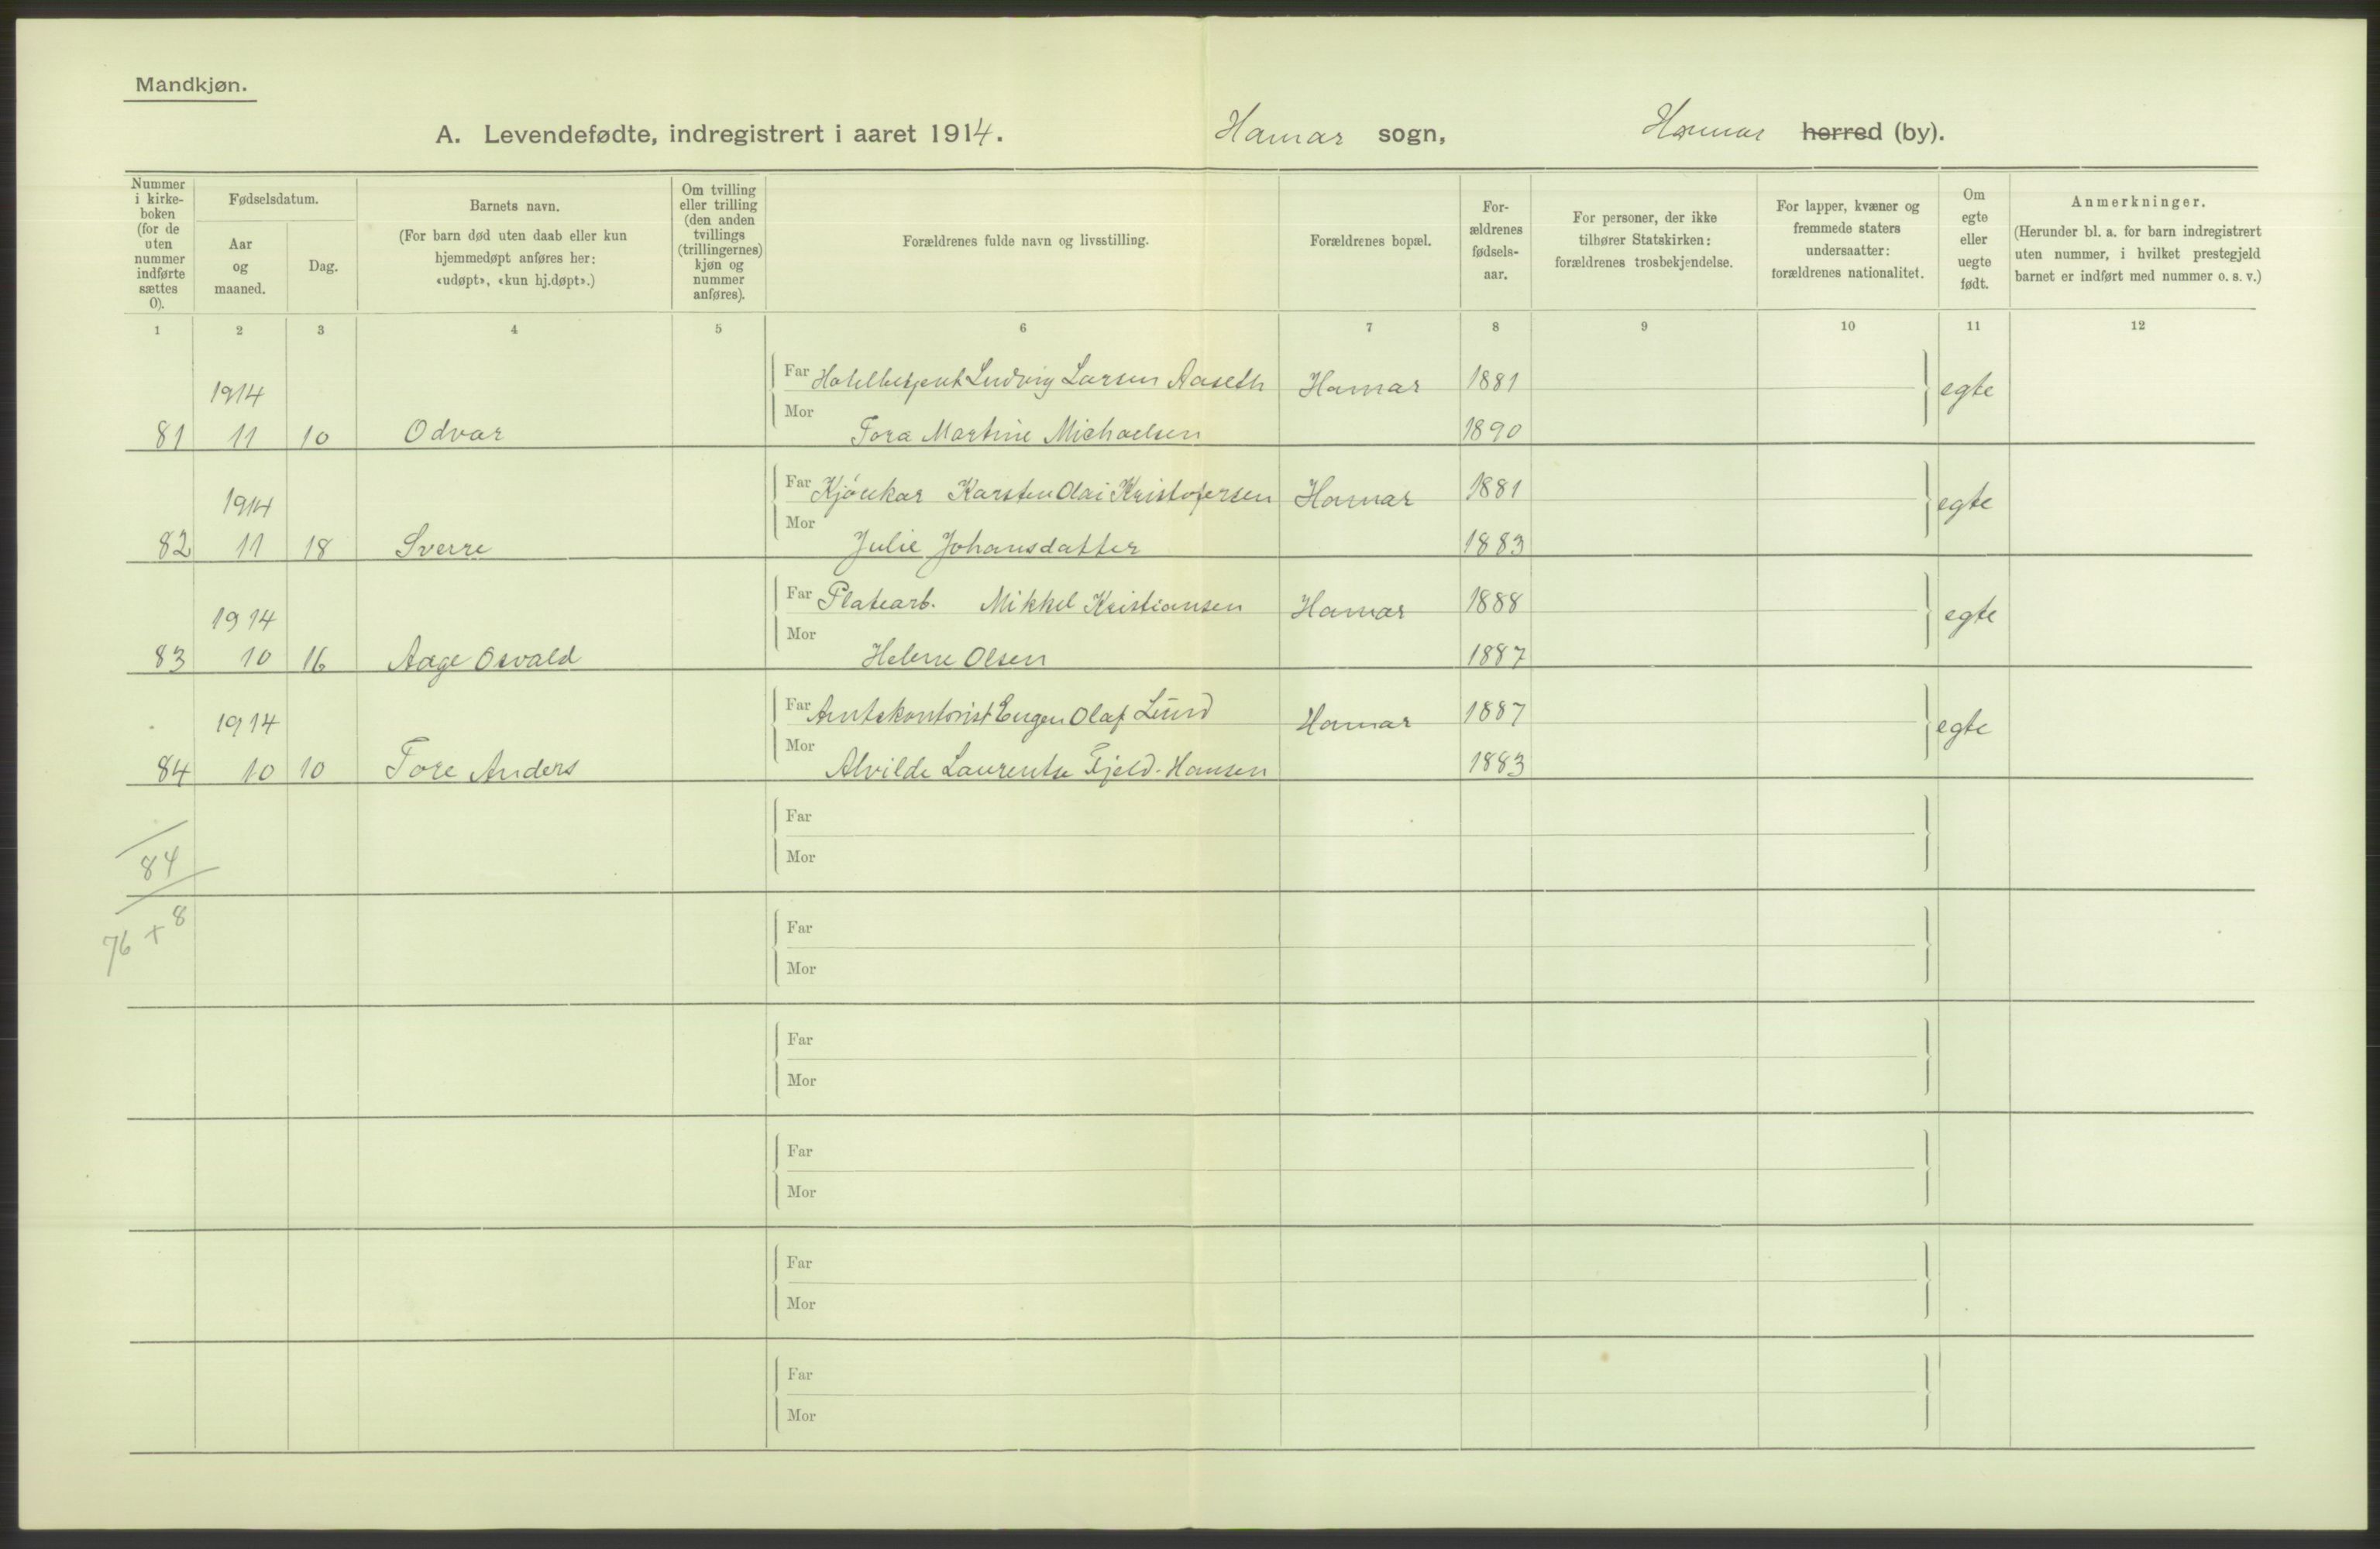 Mandkjøn.
A. Levendefødte, indregistrert i aaret 1914. Hamar sogn, Hamar herred (by).
Nummer i kirkeboken (for de uten nummer indførte sættes 0).
Fødselsdatum.
Aar og maaned.
Dag.
Barnets navn.
(For barn død uten daab eller kun hjemmedøpt anføres her: «udøpt», «kun hj.døpt».)
Om tvilling eller trilling (den anden tvillings (trillingernes) kjøn og nummer anføres).
Forældrenes fulde navn og livsstilling.
Forældrenes bopæl.
For-ældrenes fødsels-aar.
For personer, der ikke tilhører Statskirken: forældrenes trosbekjendelse.
For lapper, kvæner og fremmede staters undersaatter: forældrenes nationalitet.
Om egte eller uegte født.
Anmerkninger.
(Herunder bl. a. for barn indregistrert uten nummer, i hvilket prestegjeld barnet er indført med nummer o. s. v.)
1 2 3 4 5 6 7 8 9 10 11 12
1914 Far Hotelbetjent Ludvig Larsen Aaseth Hamar 1881 egte
81 11 10 Odvar Mor Tora Martine Michaelsen 1890
1914 Far Kjørekar Karsten Olai Kristofersen Hamar 1881 egte
82 11 18 Sverre Mor Julie Johansdatter 1883
1914 Far Platearb. Mikkel Kristiansen Hamar 1888 egte
83 10 16 Aage Osvald Mor Helene Olsen 1887
1914 Far Amtskontorist Eugen Olaf Lund Hamar 1887 egte
84 10 10 Tore Anders Mor Alvilde Laurentse Fjeld-Hansen 1883
Far
84 Mor
76 + 8 Far
Mor
Far
Mor
Far
Mor
Far
Mor
Far
Mor